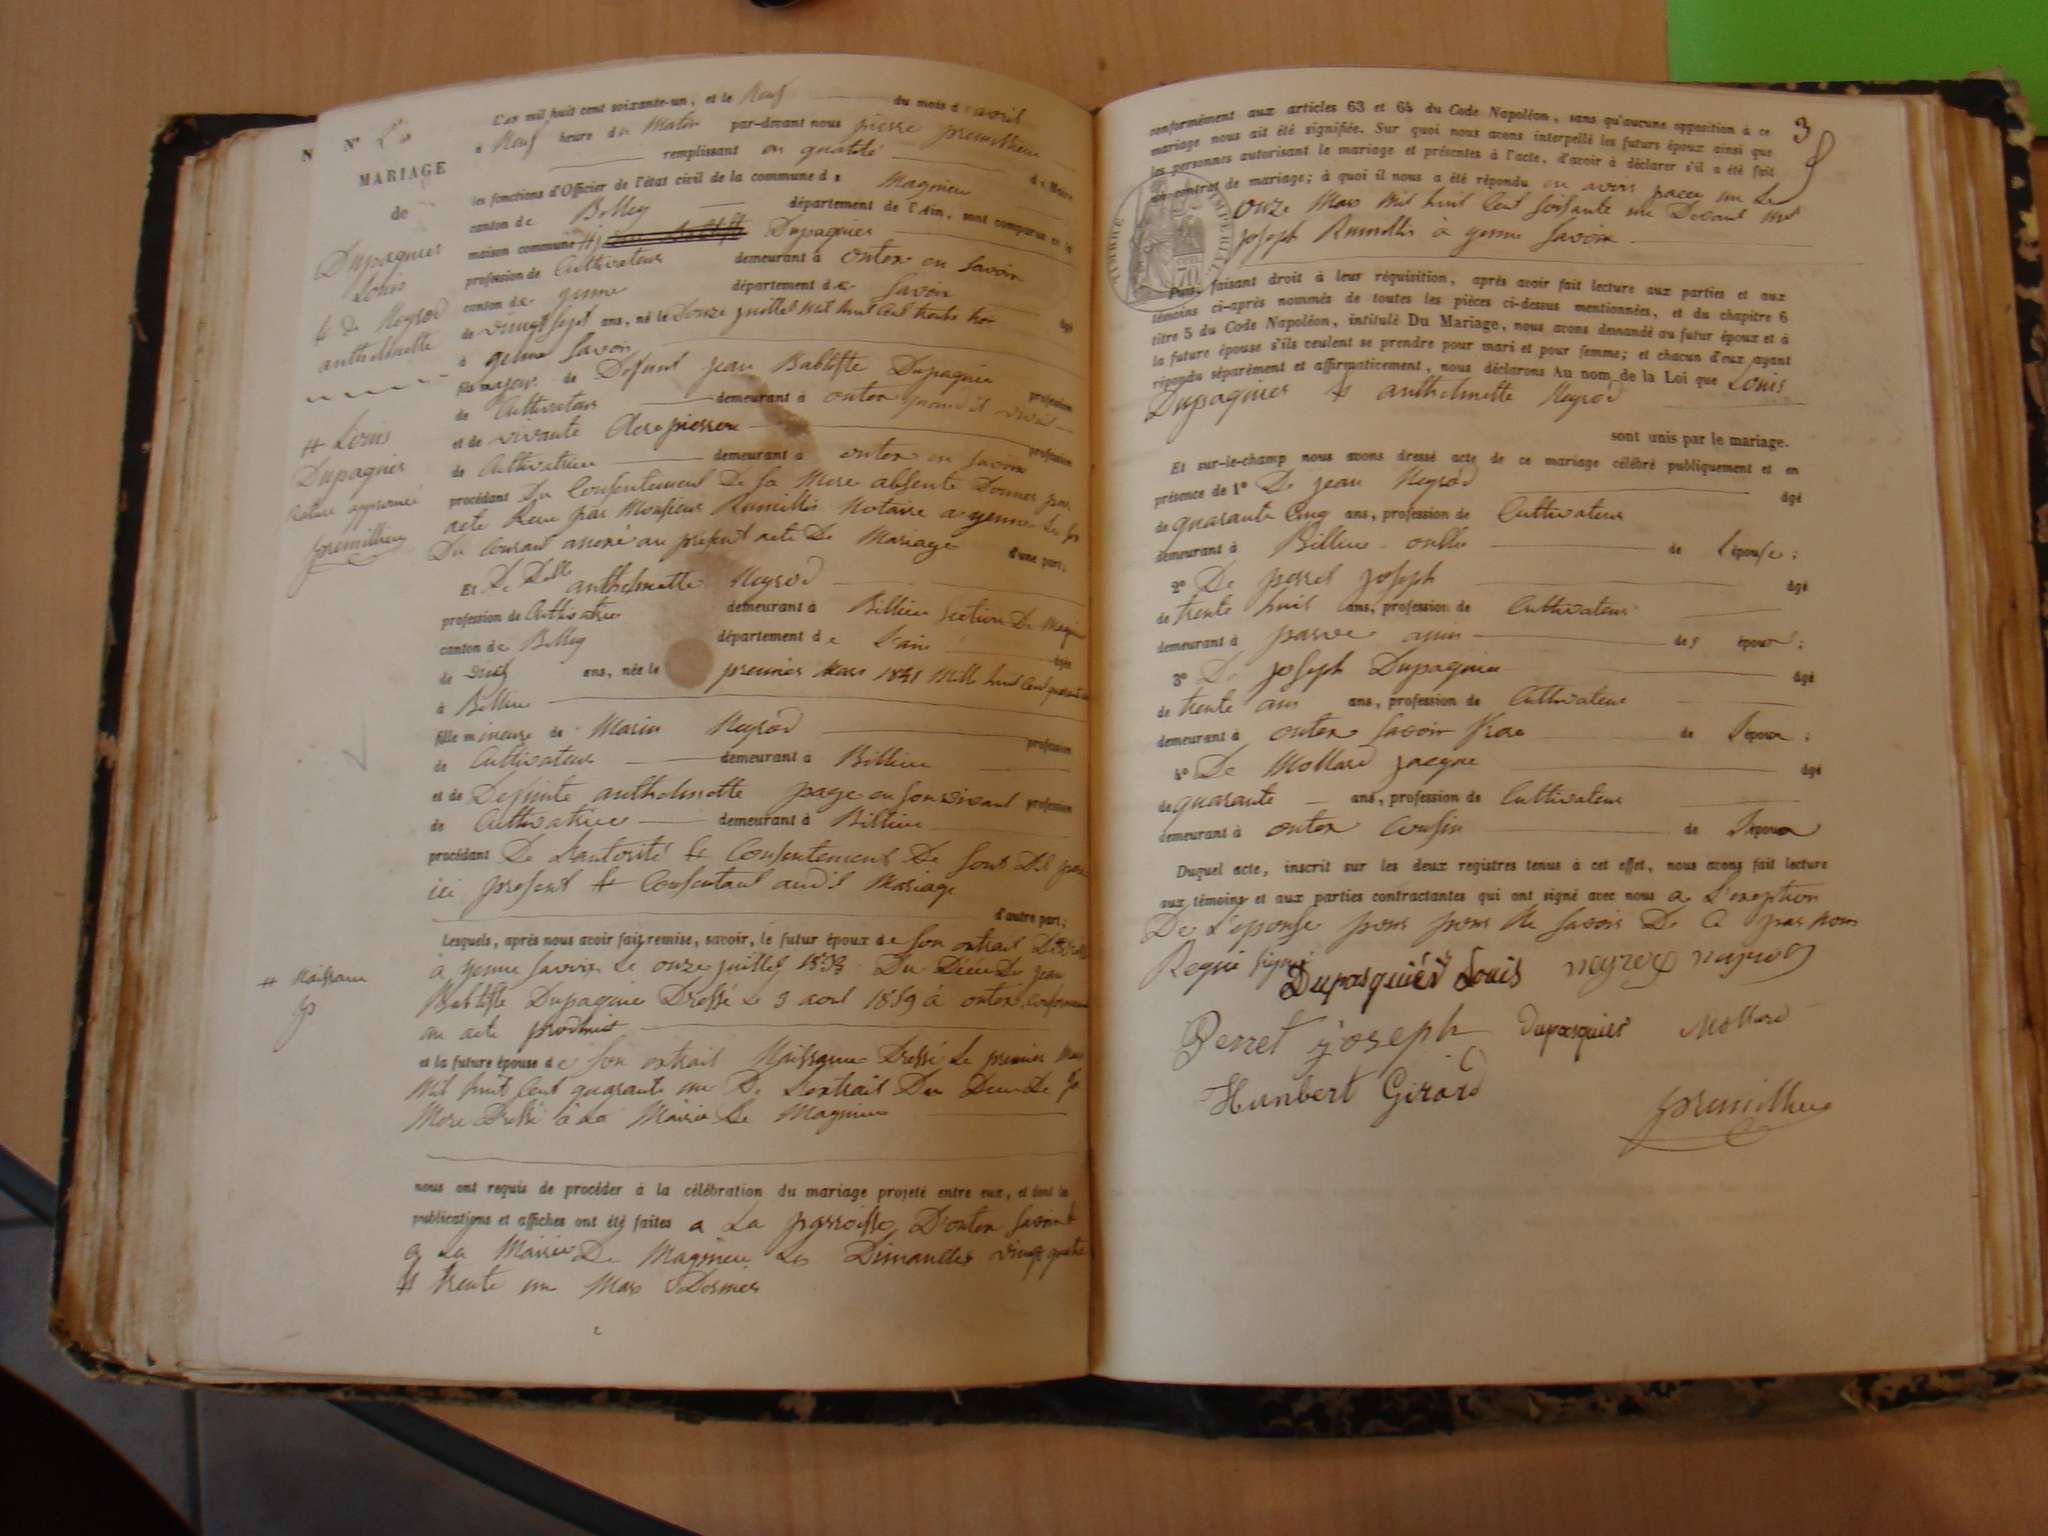 N
N° 2
MARIAGE
de
Dupaquier
Louis
& de Neyrod
anthelmette
# Louis
Dupaquier
Rature approuvé
premillieu
# Naissance
L'an mil huit cent soixante-un, et le Neuf du mois d avril
à Neuf heure du Matin par-devant nous pierre premillieu
remplissant en qualité de Maire
les fonctions d'Officier de l'état civil de la commune de Magnieu
canton de Belley département de l'Ain, sont comparus en la
maison commune # Dupaquier
profession de Cultivateur demeurant à ontex en Savoie
canton de yenne département de Savoie âgé
de vingt sept ans, né le Douze juillet Mil huit Cent trente trois
à yenne Savoie
fils majeur de Defunt jean Babtiste Dupaquier profession
de Cultivateur demeurant à ontex quand il vivait
et de vivante Clere pierron profession
de Cultivatrice demeurant à ontex en Savoie
procédant Du Consentement De Sa Mere absente Donner par
acte Recu par Monsieur Rumillis Notaire a yenne Le
Du Courant annexé au présent acte De Mariage d'une part;
Et De Delle anthelmette Neyrod
profession de Cultivatrice demeurant à Billieu section De Magnieu
canton de Belley département de L'ain âgée
de vingt ans, née le premier Mars 1841 Mille huit Cent quarante un
à Billieu
fille mineure de Marin Neyrod profession
de Cultivateur demeurant à Billieu
et de Defunte anthelmette page en son vivant profession
de Cultivatrice demeurant à Billieu
procédant De L'autorité & Consentement De Sont Dit pere
ici present & Consentant audit Mariage
d'autre part;
Lesquels, après nous avoir fait remise, savoir, le futur époux de Son extrait De #
à yenne Savoie Le onze juillet 1833 Du Décès De jean
Babtiste Dupaquier Dressé Le 3 aout 1859 à ontex Conformement
au acte produit
et la future épouse de Son extrait Naissance Dressé Le premier Mars
Mil huit Cent quarante un De L'extrait Du Deces De Sa
Mere Dressé à La Mairie De Magnieu
nous ont requis de procéder à la célébration du mariage projeté entre eux, et dont les
publications et affiches ont été faites a La parroisse D'ontex Savoie &
a La Mairie De Magnieu Les Dimanches vingt quatre
& trente un Mars Dernier
3
conformément aux articles 63 et 64 du Code Napoléon, sans qu'aucune opposition à ce
mariage nous ait été signifiée. Sur quoi nous avons interpellé les futurs époux ainsi que
les personnes autorisant le mariage et présentes à l'acte, d'avoir à déclarer s'il a été fait
un contrat de mariage; à quoi il nous a été répondu en avoir passer un Le
onze Mars Mil huit Cent Soixante un Devant Mtre
Joseph Rumillis à yenne Savoie
TIMBRE IMPERIAL
70
Puis, faisant droit à leur réquisition, après avoir fait lecture aux parties et aux
témoins ci-après nommés de toutes les pièces ci-dessus mentionnées, et du chapitre 6
titre 5 du Code Napoléon, intitulé Du Mariage, nous avons demandé au futur époux et à
la future épouse s'ils veulent se prendre pour mari et pour femme; et chacun d'eux ayant
répondu séparément et affirmativement, nous déclarons Au nom de la Loi que Louis
Dupaquier & anthelmette Neyrod
sont unis par le mariage.
Et sur-le-champ nous avons dressé acte de ce mariage célébré publiquement et en
présence de 1° De jean Neyrod âgé
de quarante Cinq ans, profession de Cultivateur
demeurant à Billieu oncle de L'épouse;
2° De perret joseph âgé
de trente huit ans, profession de Cultivateur
demeurant à parves amis des époux;
3° De joseph Dupaquier âgé
de trente ans ans, profession de Cultivateur
demeurant à ontex Savoie frere de L'époux;
4° De Mollard jacque âgé
de quarante ans, profession de Cultivateur
demeurant à ontex Cousin de L'époux
Duquel acte, inscrit sur les deux registres tenus à cet effet, nous avons fait lecture
aux témoins et aux parties contractantes qui ont signé avec nous a L'exeption
De L'epouse pour ne Savoir De Ce par nous
Requi signé
Dupasquier Louis neyrod neyrod
Perret joseph dupasquier Mollard
Humbert Girard
premillieu